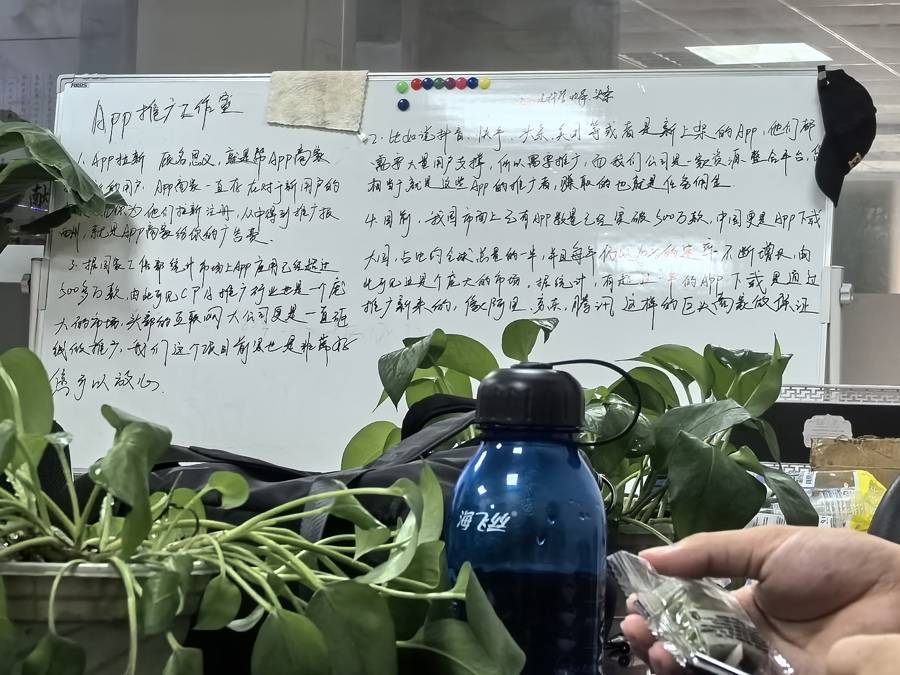 App推广工作室
1. App拉新 顾名思义，就是帮App商家
的用户，App商家一直在应对于新用户的
为他们拉新注册，从中得到推广报
酬，就是App商家给你的广告费。
3、据国家工信部统计市场上App应用已经超过
300多万款，由此可见CPA推广行业也是一个庞
大的市场，头部的互联网大公司更是一直砸
钱做推广，我们这个项目前景也是非常好
您可以放心
2、比如说抖音、快手、头条、美团等或者是新上架的App，他们都
需要大量用户支撑，所以需要推广，而我们公司是一家资源整合平台，
相当于就是这些App的推广者，赚取的也就是任务佣金
4.目前，我国市面上已有App数量已经突破300万款，中国更是APP下载
大国，占比约全球总量的一半，并且每年 不断增长，由
此可见这是个庞大的市场。据统计，有超过一半的APP下载是通过
推广新来的，像阿里、京东、腾讯这样的巨头商家做保证